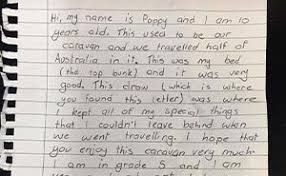 Hi, my name is Poppy and I am 10
years old. This used to be our
caravan and we travelled half of
Australia in it. This was my bed
(the top bunk) and it was very
good. This draw (which is where
you found this letter) was where
I kept all of my special things
that I couldn't leave behind when
we went travelling. I hope that
you enjoy this caravan very much.
I am in grade 5 and I am